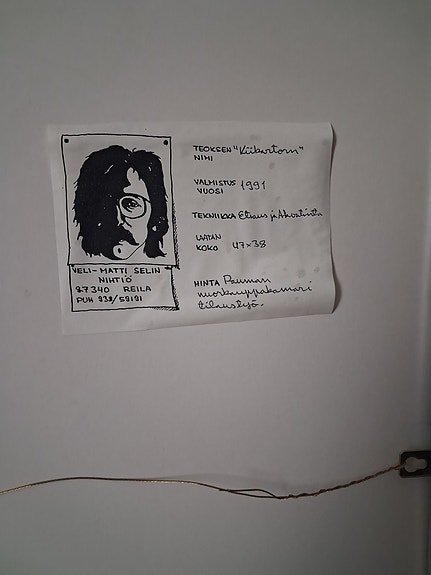 VELI-MATTI SELIN
NIHTIÖ
27340 REILA
PUH 938/59191
TEOKSEN "Kiikartorn"
NIMI
VALMISTUS 1991
VUOSI
TEKNIIKKA Etsaus ja Akvatinta
LAATAN
KOKO 47×38
HINTA Rauman
nuorkauppakamari
tilaustyö.